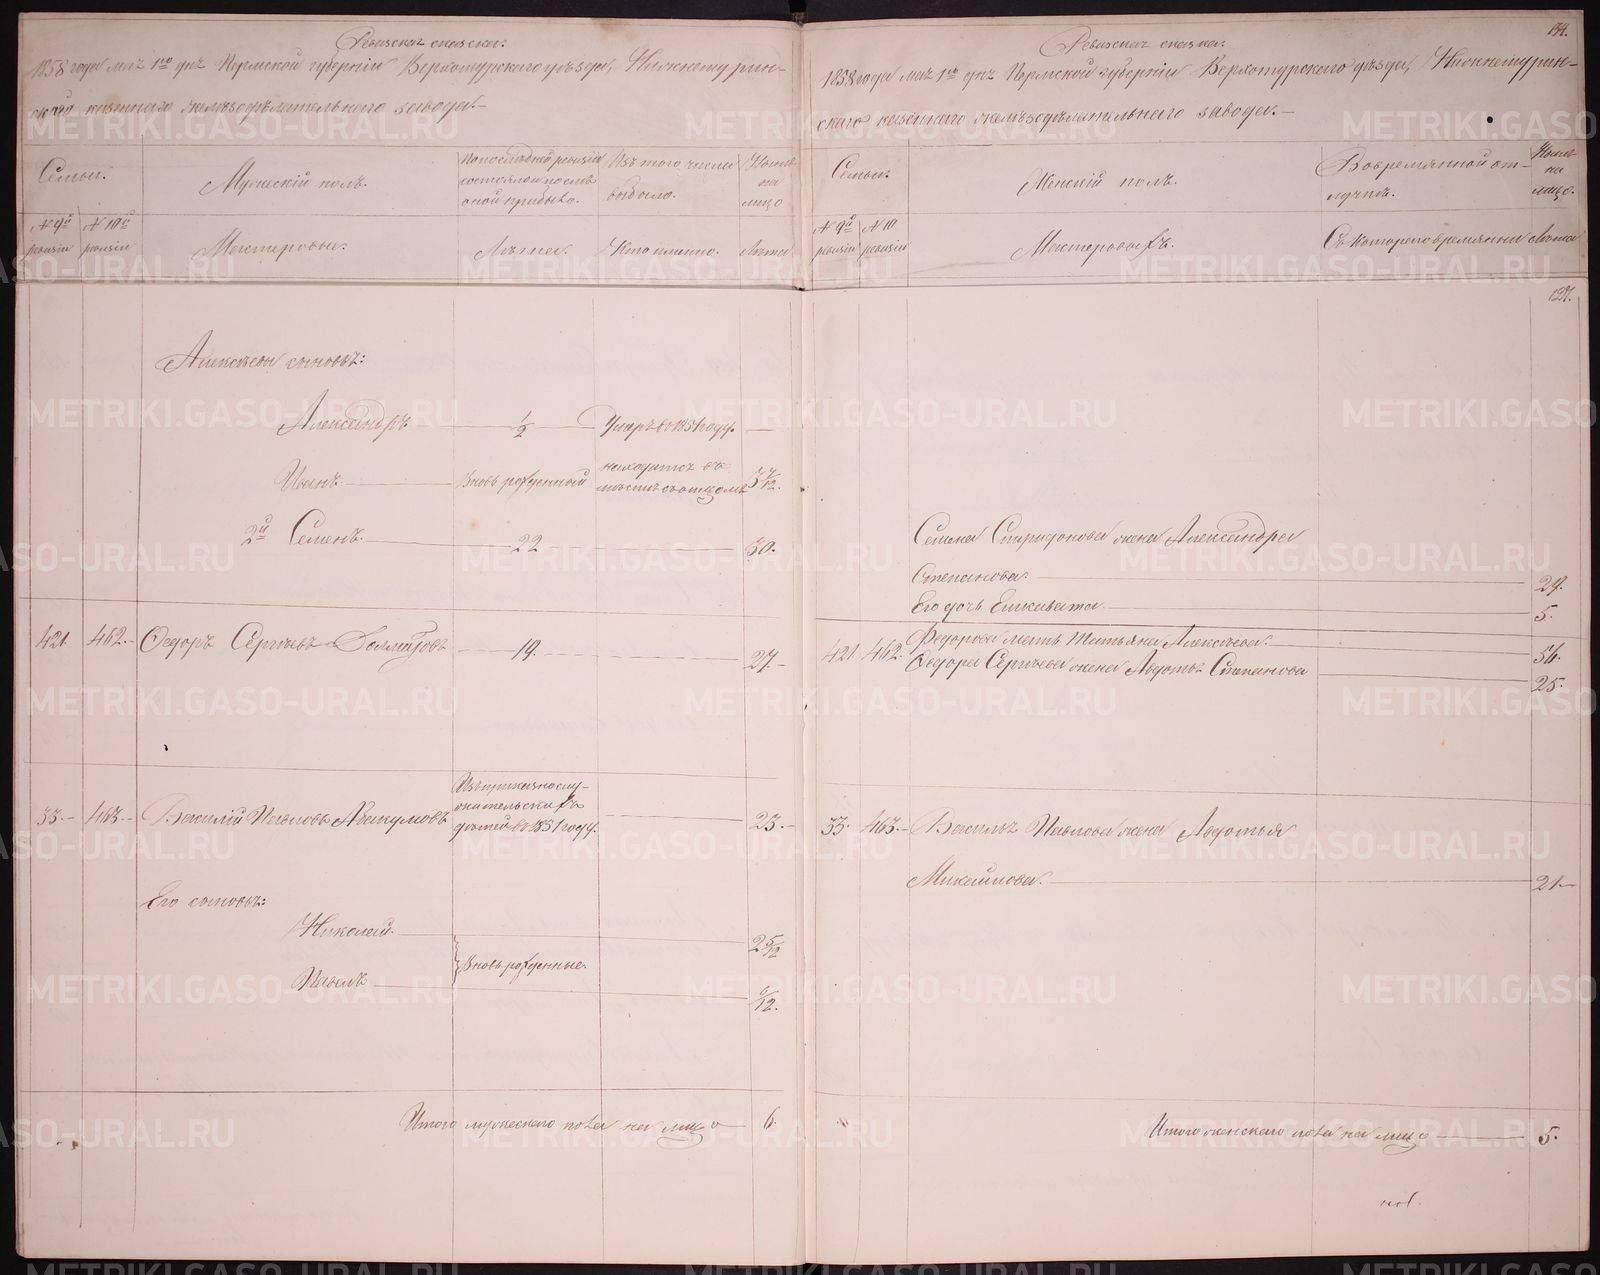 Ревизская сказка.
1858 года мая 1го дня Пермской губернiи Верхотурского уѣзда, Нижнетурин-
скаго казеннаго желѣзодѣлательнаго завода.
Семьи.
Мужескiй полъ.
По послѣдней ревизiи
состояло и послѣ
оной прибыло.
Изъ того числа
выбыло.
Нынѣ
на
лицо
№ 9й
ревизiи
№ 10й
ревизiи
Мастеровые.
Лѣта.
Кто именно.
Лѣта
Алексѣевы сыновья:
Александръ 1/2 Умеръ въ 1851 году.
Иванъ Вновь рожденный находится въ
мѣстѣ съ отцомъ
2й Семенъ. 22 30.
421. 462. Федоръ Сергѣевъ 19. 27.
33. 463. Василiй Павловъ Авакумовъ
Изъ приказнослу-
жительскихъ
дѣтей въ 1851 году. 23.
Его сыновья:
Николай. 2 5/12
Вновь рожденные.
Павелъ
Итого мужескаго пола на лицо 6.
Ревизская сказка.
134.
1858 года мая 1го дня Пермской губернiи Верхотурского уѣзда, Нижнетурин-
скаго казеннаго желѣзодѣлательнаго завода.
Семьи.
Женскiй полъ.
Во временной от-
лучкѣ.
Нынѣ
на
лицо.
№ 9й
ревизiи
№ 10
ревизiи
Мастеровыхъ.
Съ котораго времяни
Лѣта
Семена Спиридонова жена Александра
Степанова. 29.
Его дочь Елисавета 5.
421. 462. Федорова мать Татьяна Алексѣева. 56.
Федора Сергѣева жена Авдотья Степанова 25.
33. 463. Василья Павлова жена Авдотья
Михайлова. 21.
Итого женскаго пола на лицо 5.
METRIKI.GASO-URAL.RU